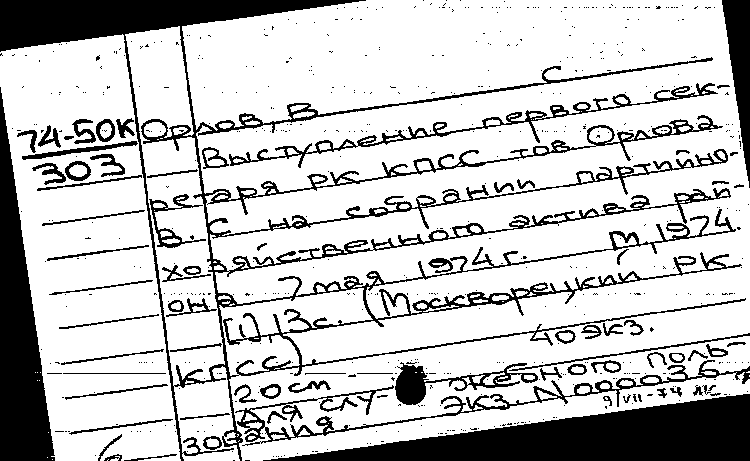 74-50К
303
Орлов, В С
Выступление первого сек-
ретаря РК КПСС тов Орлова
В. С на собрании партийно-
хозяйственного актива рай-
она. 7 мая 1974 г. М, 1974.
[1], 13 с. (Москворецкий РК
КПСС). 40 экз.
20 см
Для служебного поль-
зования. Экз. N 000036
9/VII-74